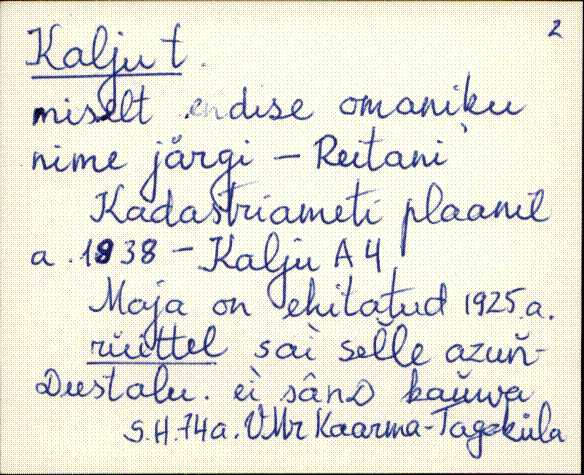 2
Kalju t.
miselt endise omaniku
nime järgi – Reitani
Kadastriameti plaanil
a. 1938 – Kalju A4
Maja on ehitatud 1925.a.
rüittel sai selle azuň-
Dustalu. ei sânD kaŭwa
S.H.74a. VMr Kaarma-Tageküla